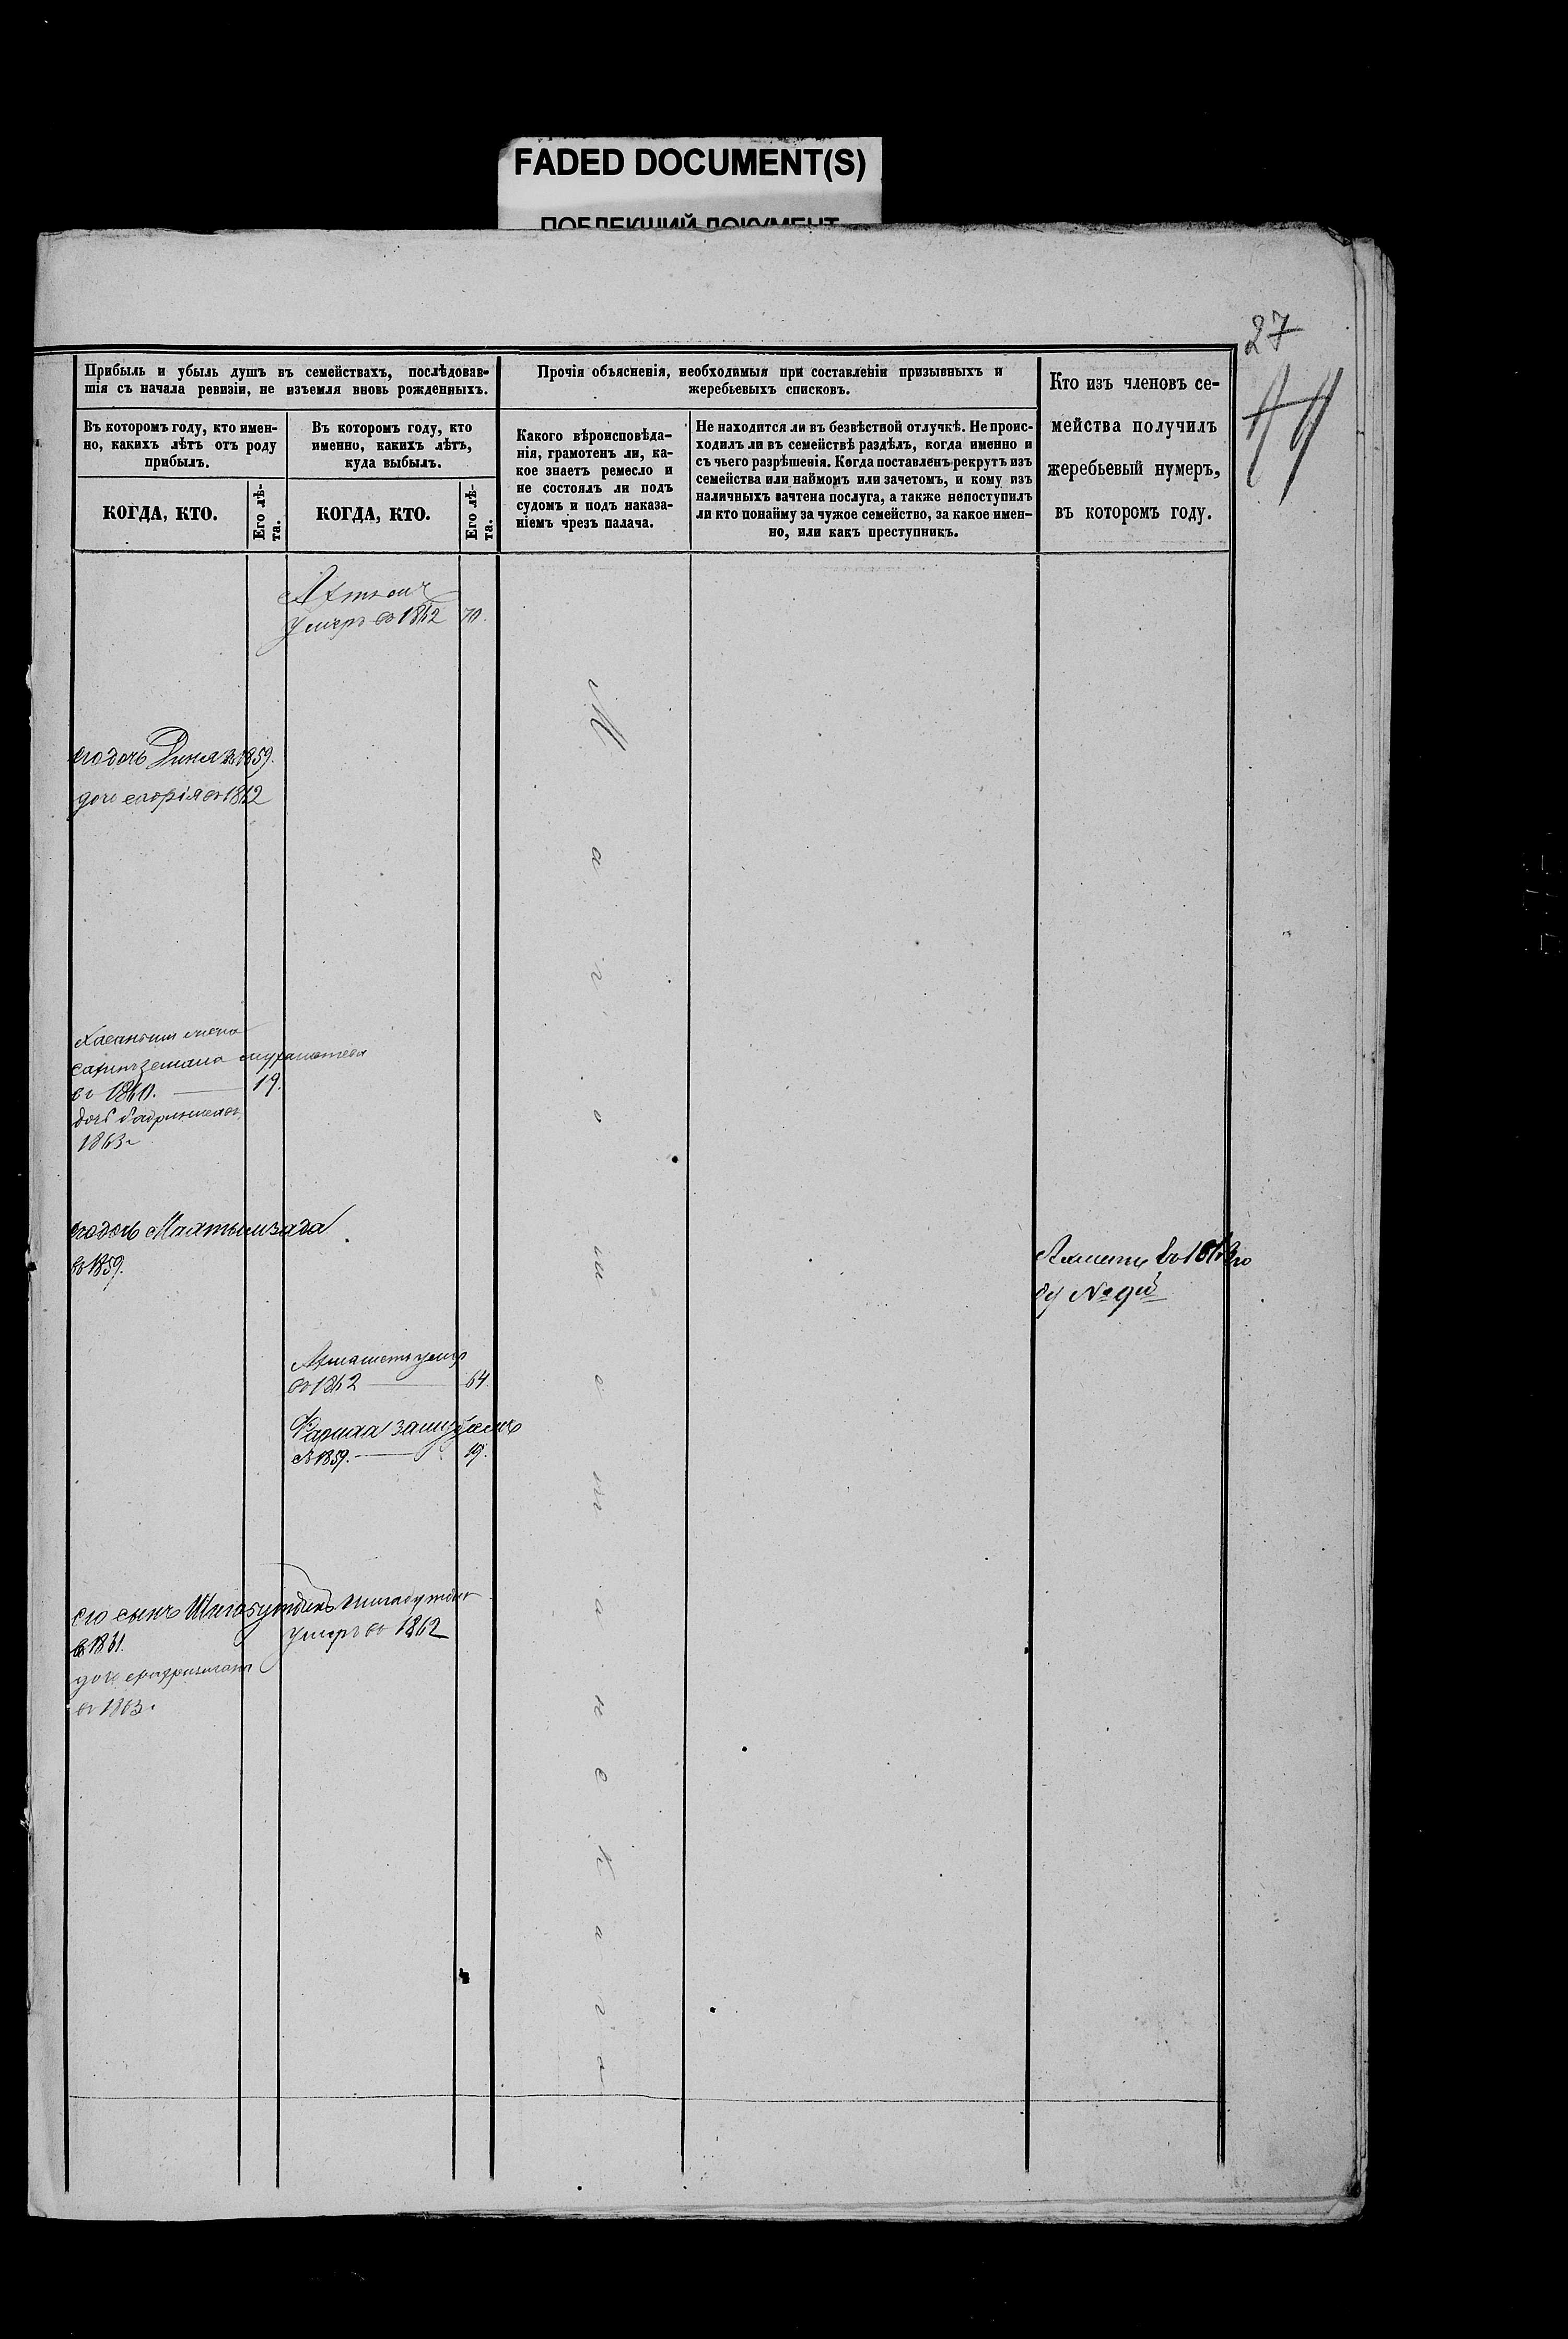 FADED DOCUMENT(S)
ПОБЛЕКШИЙ ДОКУМЕНТ
27
Прибыль и убыль душъ въ семействахъ, послѣдовав-
шія съ начала ревизіи, не изъемля вновь рожденныхъ.
Въ которомъ году, кто имен-
но, какихъ лѣтъ отъ роду
прибылъ.
Въ которомъ году, кто
именно, какихъ лѣтъ,
куда выбылъ.
КОГДА, КТО.
Его лѣ-
та.
КОГДА, КТО.
Его лѣ-
та.
Прочія объясненія, необходимыя при составленіи призывныхъ и
жеребьевыхъ списковъ.
Какого вѣроисповѣда-
нія, грамотенъ ли, ка-
кое знаетъ ремесло и
не состоялъ ли подъ
судомъ и подъ наказа-
ніемъ чрезъ палача.
Не находится ли въ безвѣстной отлучкѣ. Не проис-
ходилъ ли въ семействѣ раздѣлъ, когда именно и
съ чьего разрѣшенія. Когда поставленъ рекрутъ изъ
семейства или наймомъ или зачетомъ, и кому изъ
наличныхъ зачтена послуга, а также непоступилъ
ли кто понайму за чужое семейство, за какое имен-
но, или какъ преступникъ.
Кто изъ членовъ се-
мейства получилъ
жеребьевый нумеръ,
въ которомъ году.
умеръ въ 1862 70.
его дочь Динея въ 1859.
дочь въ 1862
жена
въ 1860. 19.
дочь
1863 г
его дочь Мяхтымзада
въ 1859.
въ 1863 го
ду № 9й
Ахметъ умер
въ 1862 64
Фариха замужемъ
съ 1859. 19.
его сынъ Шигабутдинъ Шигабутдин
в 1861. умеръ въ 1862
дочь
въ 1863.
Магометанскаго